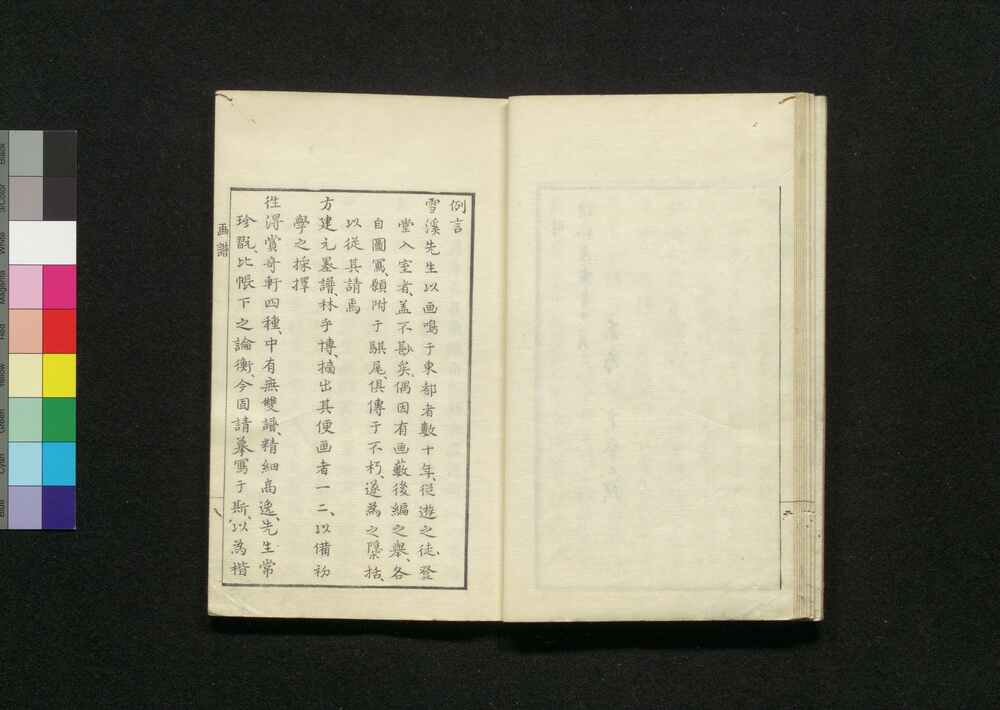 例言
雪溪先生以画鳴于東都者數十年、從遊之徒、登
堂入室者、盖不尠矣、偶因有画藪後編之舉、各
自圖寫、願附于騏尾、俱傳于不朽、遂為之隱括、
以從其請焉
方建元墨譜、林乎博、摘出其便画者一二、以備初
學之採擇
徃淂賞奇軒四種、中有無雙譜、精細高逸、先生常
珍翫、比帳下之論衡、今固請摹寫于斯、以為楷
画譜
Black
3/Color
White
Magenta
Red
Yellow
Green
Cyan
Blue